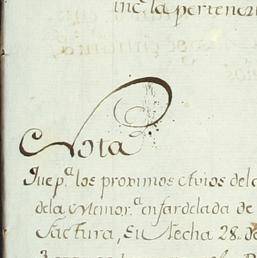 inc. la pertener
Nota
Que p.ª los proximos Avios del
de la Memor.ª enfardelada de
Factura, Su fecha 28. de